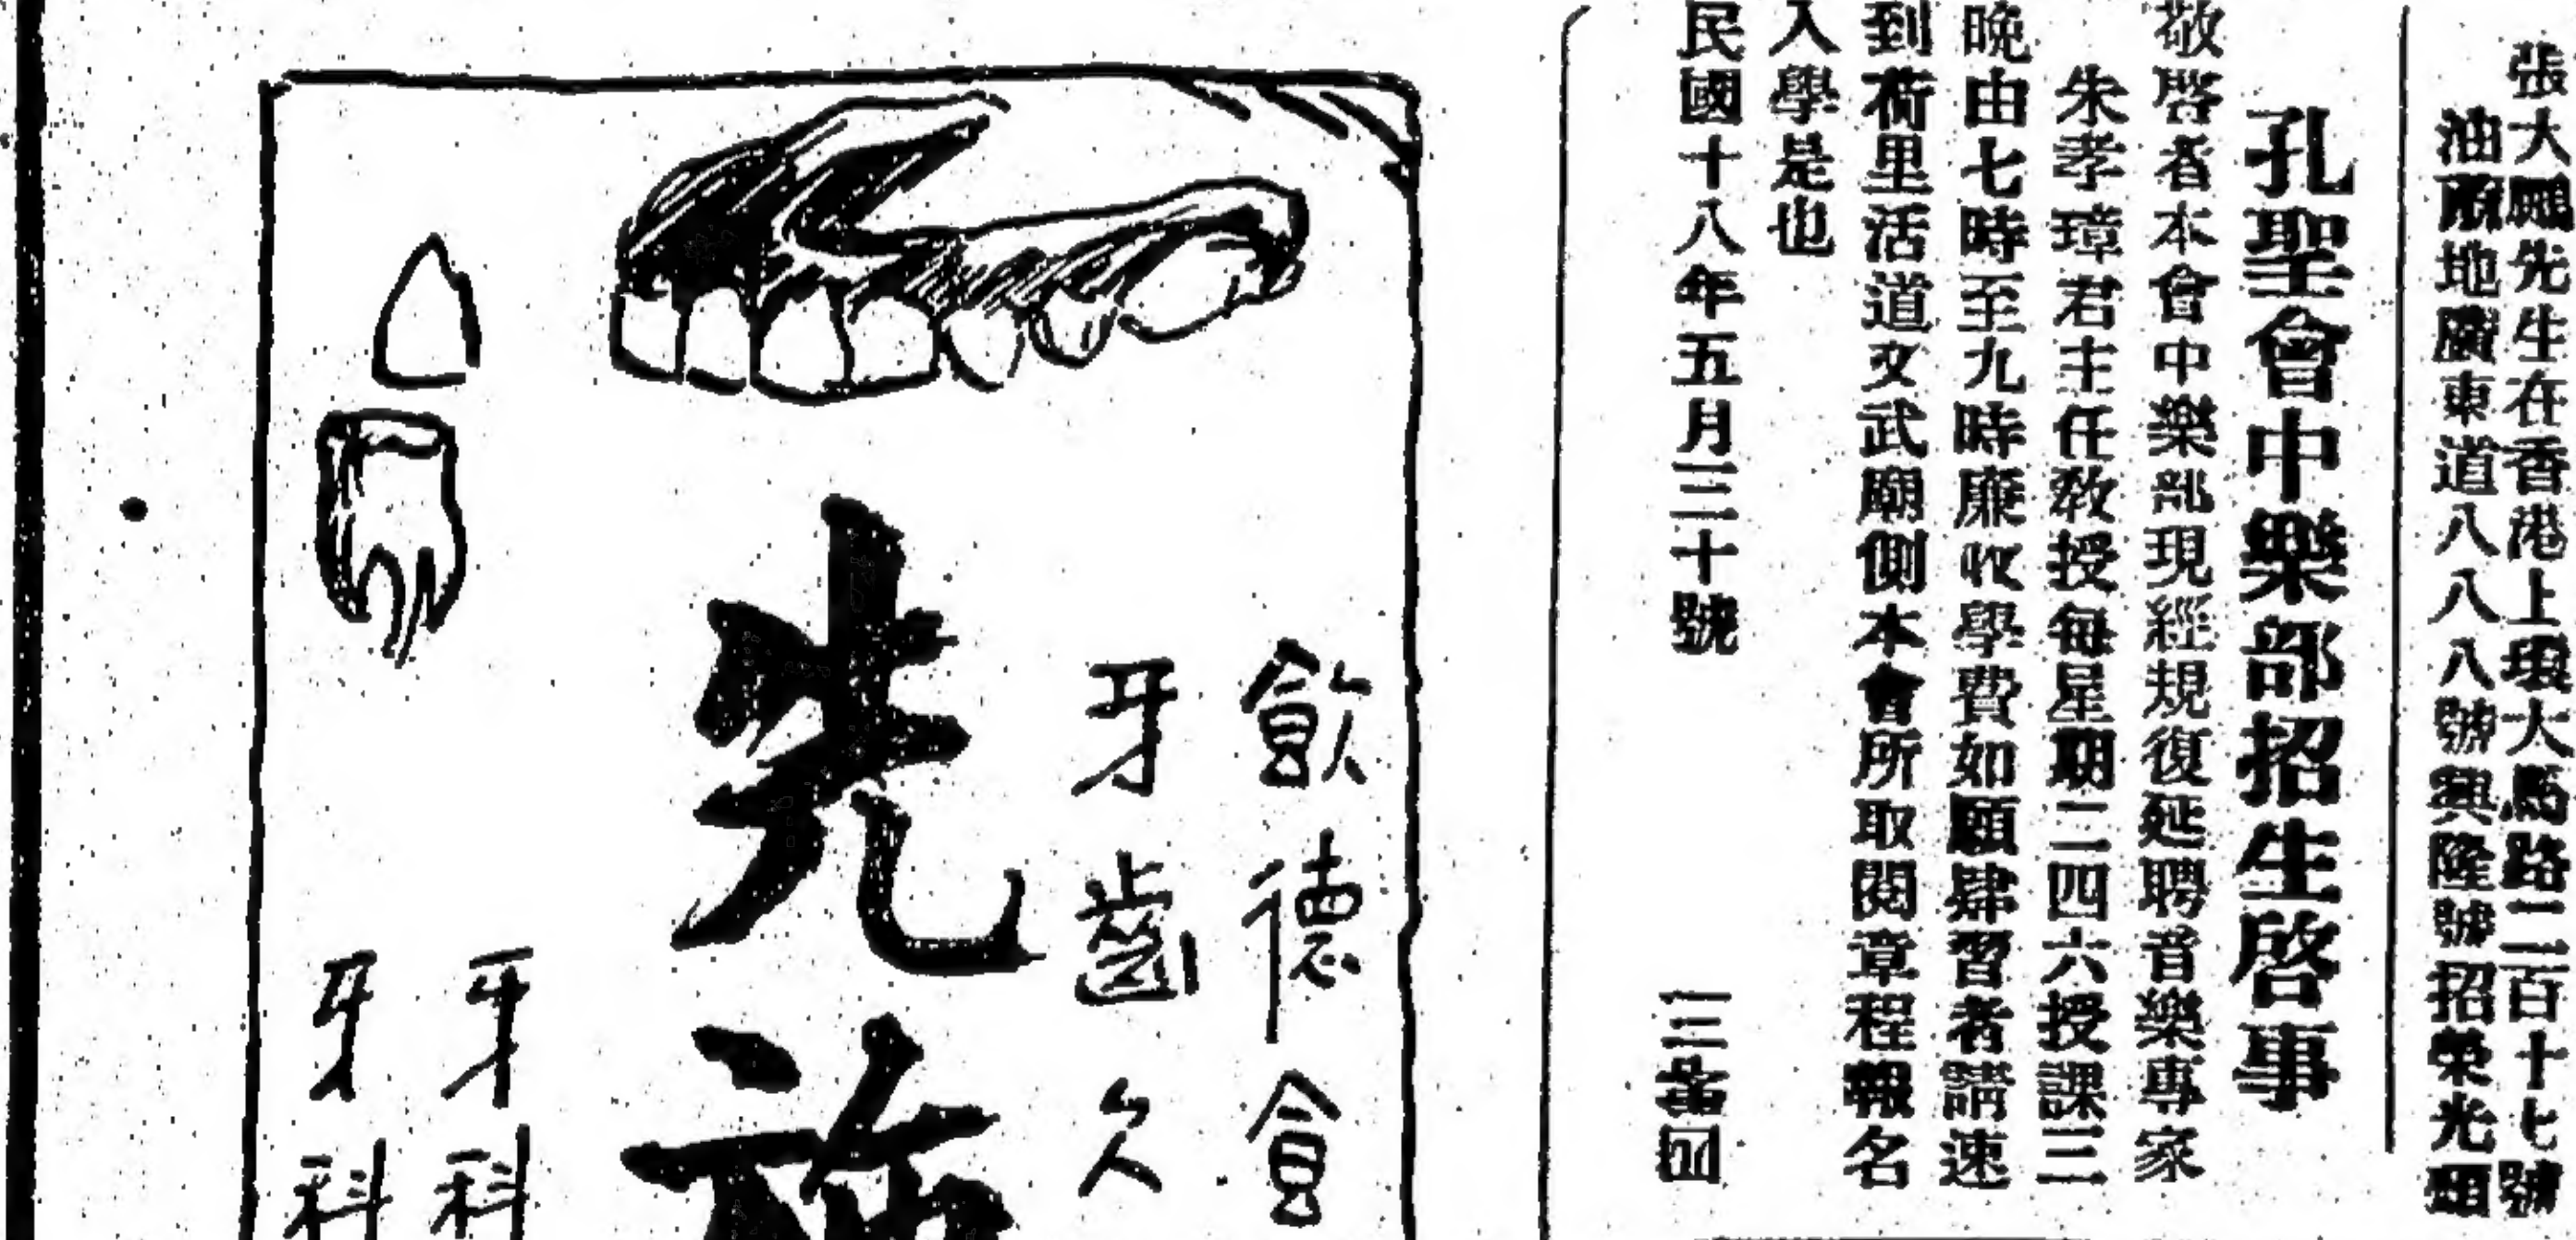 張大鵬先生在香港上環大馬路二百十七號
油蔴地廣東道八八八號興隆號招榮光頓
孔聖會中樂部招生啓事
敬啓者本會中樂部現經規復延聘音樂專家
朱孝璋君主任敎授每星期二四六授課三
晚由七時至九時廉收學費如願肄習者請速
到荷里活道文武廟側本會所取閱章程報名
入學是也
民國十八年五月三十號
飮德會
牙齒久
先施
牙科
牙科